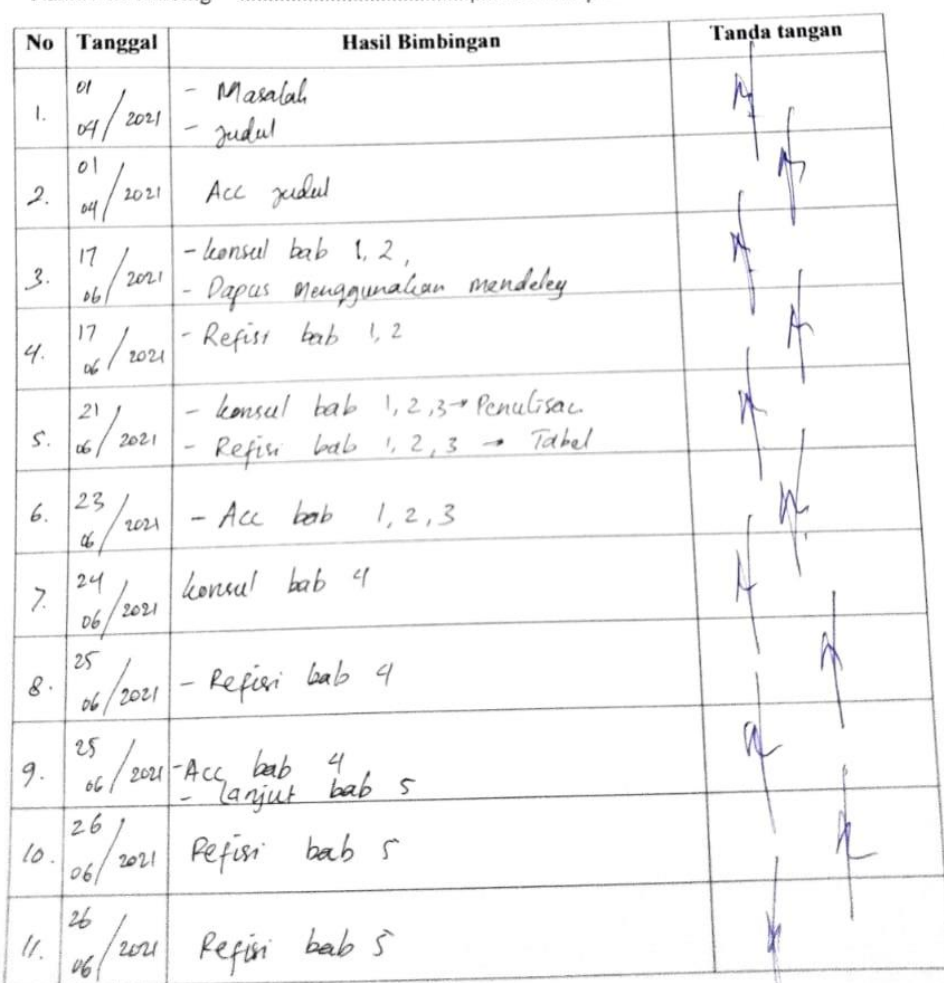 No Tanggal Hasil Bimbingan Tanda tangan
1. 01/04/2021 - Masalah
- Judul
2. 01/04/2021 Acc Judul
3. 17/06/2021 - konsul bab 1, 2,
- Dapus Menggunakan mendeley
4. 17/06/2021 - Refisi bab 1, 2
5. 21/06/2021 - konsul bab 1, 2, 3 → Penulisan
- Refisi bab 1, 2, 3 → Tabel
6. 23/06/2021 - Acc bab 1, 2, 3
7. 24/06/2021 konsul bab 4
8. 25/06/2021 - Refisi bab 4
9. 25/06/2021 - Acc bab 4
- lanjut bab 5
10. 26/06/2021 Refisi bab 5
11. 26/06/2021 Refisi bab 5